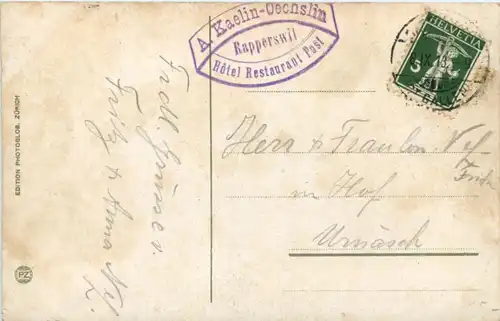 A. Kaelin-Oechslin
Rapperswil
Hôtel Restaurant Post
HELVETIA
5
EDITION PHOTOGLOB, ZÜRICH
PZ
Frdl. Grüsse v.
Fritz & Anna Nef
Herr & Frau Nef
im Hof
Urnäsch